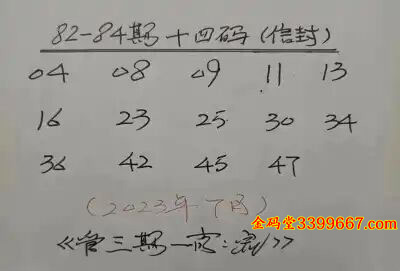 82-84期十四码(信封)
04 08 09 11 13
16 23 25 30 34
36 42 45 47
(2023年7月)
金码堂3399667.com
《管三期一定:》